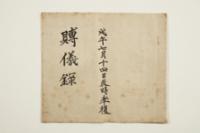 戊午七月十四日辰時奉復
賻儀錄